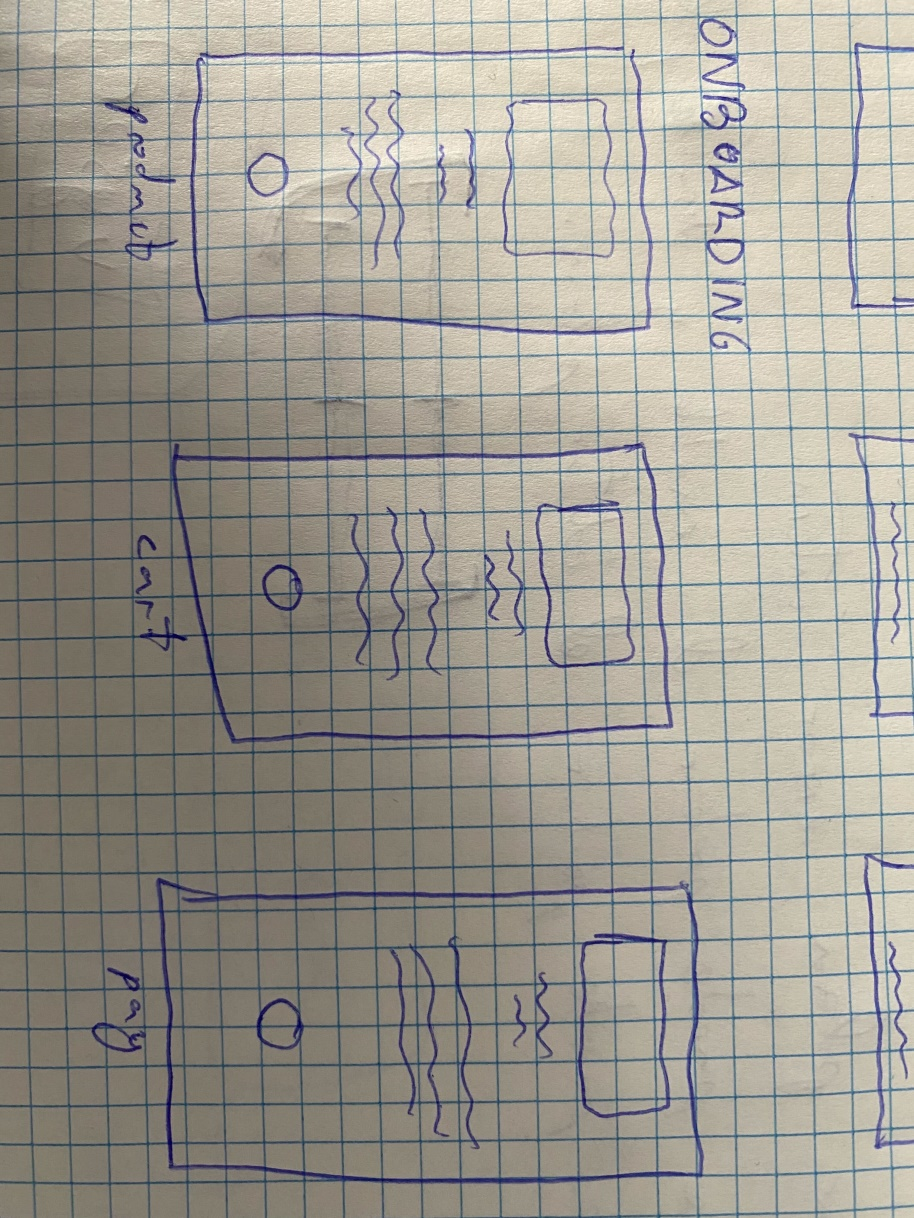 ONBOARDING
product
cart
pay